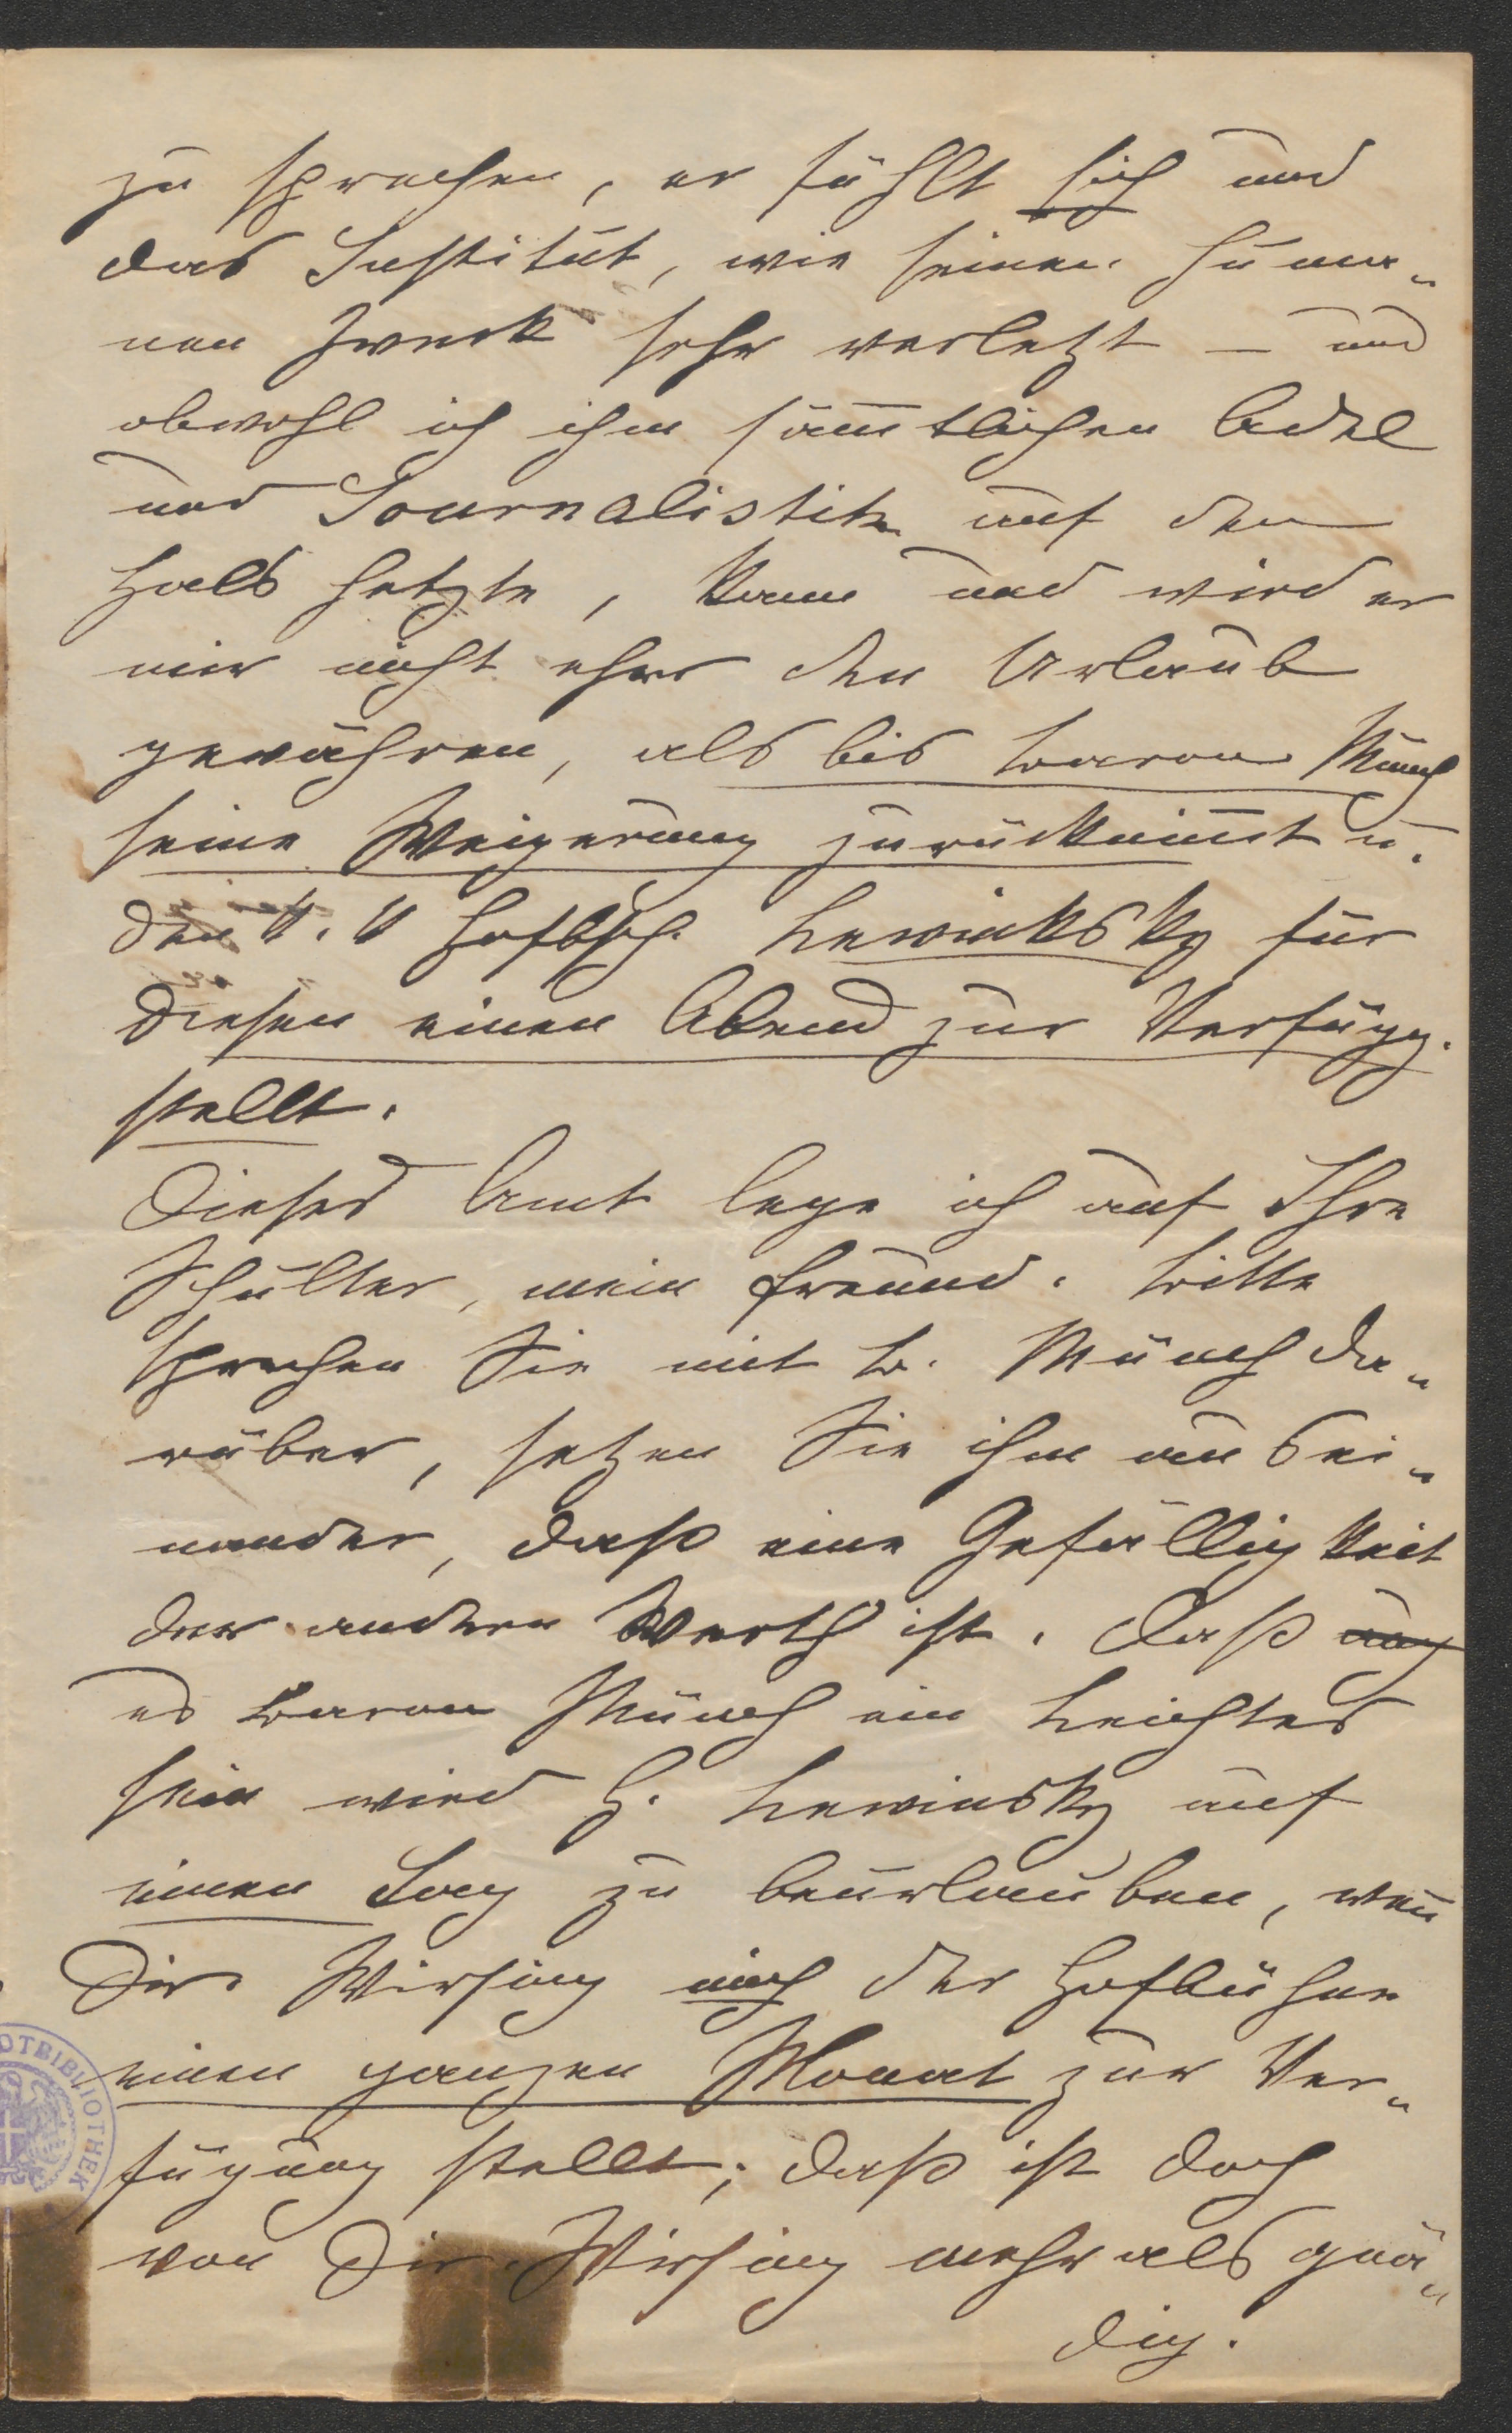 zu sprechen, er fühlt sich und
das Institut, wie seinen huma„
nen Zweck sehr verletzt – und
obwohl ich ihm sämtlichen Adel
und Journalistik auf den
Hals hetzte, kann und wird er
mir nicht eher den Urlaub
gewähren, als bis Baron Münch
seine Weigerung zurücknimmt u.
den k. k Hofbsch. Lewinksky für
diesen einen Abend zur Verfügg.
stellt.
Dieses Amt lege ich auf Ihre
Schulter, mein Freund. Bitte
sprechen Sie mit B. Münch da„
rüber, setzen Sie ihm ausei„
nander, daß eine Gefälligkeit
der andern Werth ist. Daß
es Baron Münch ein Leichtes
sein wird H. Lewinsky auf
einen Tag zu beurlauben, wenn
Dir. Wirsing mich der Hofbühne
einen ganzen Monat zur Ver„
fügung stellt; daß ist doch
von Dir. Wirsing mehr als gnä„
dig.
OTBIBLIOTHEK